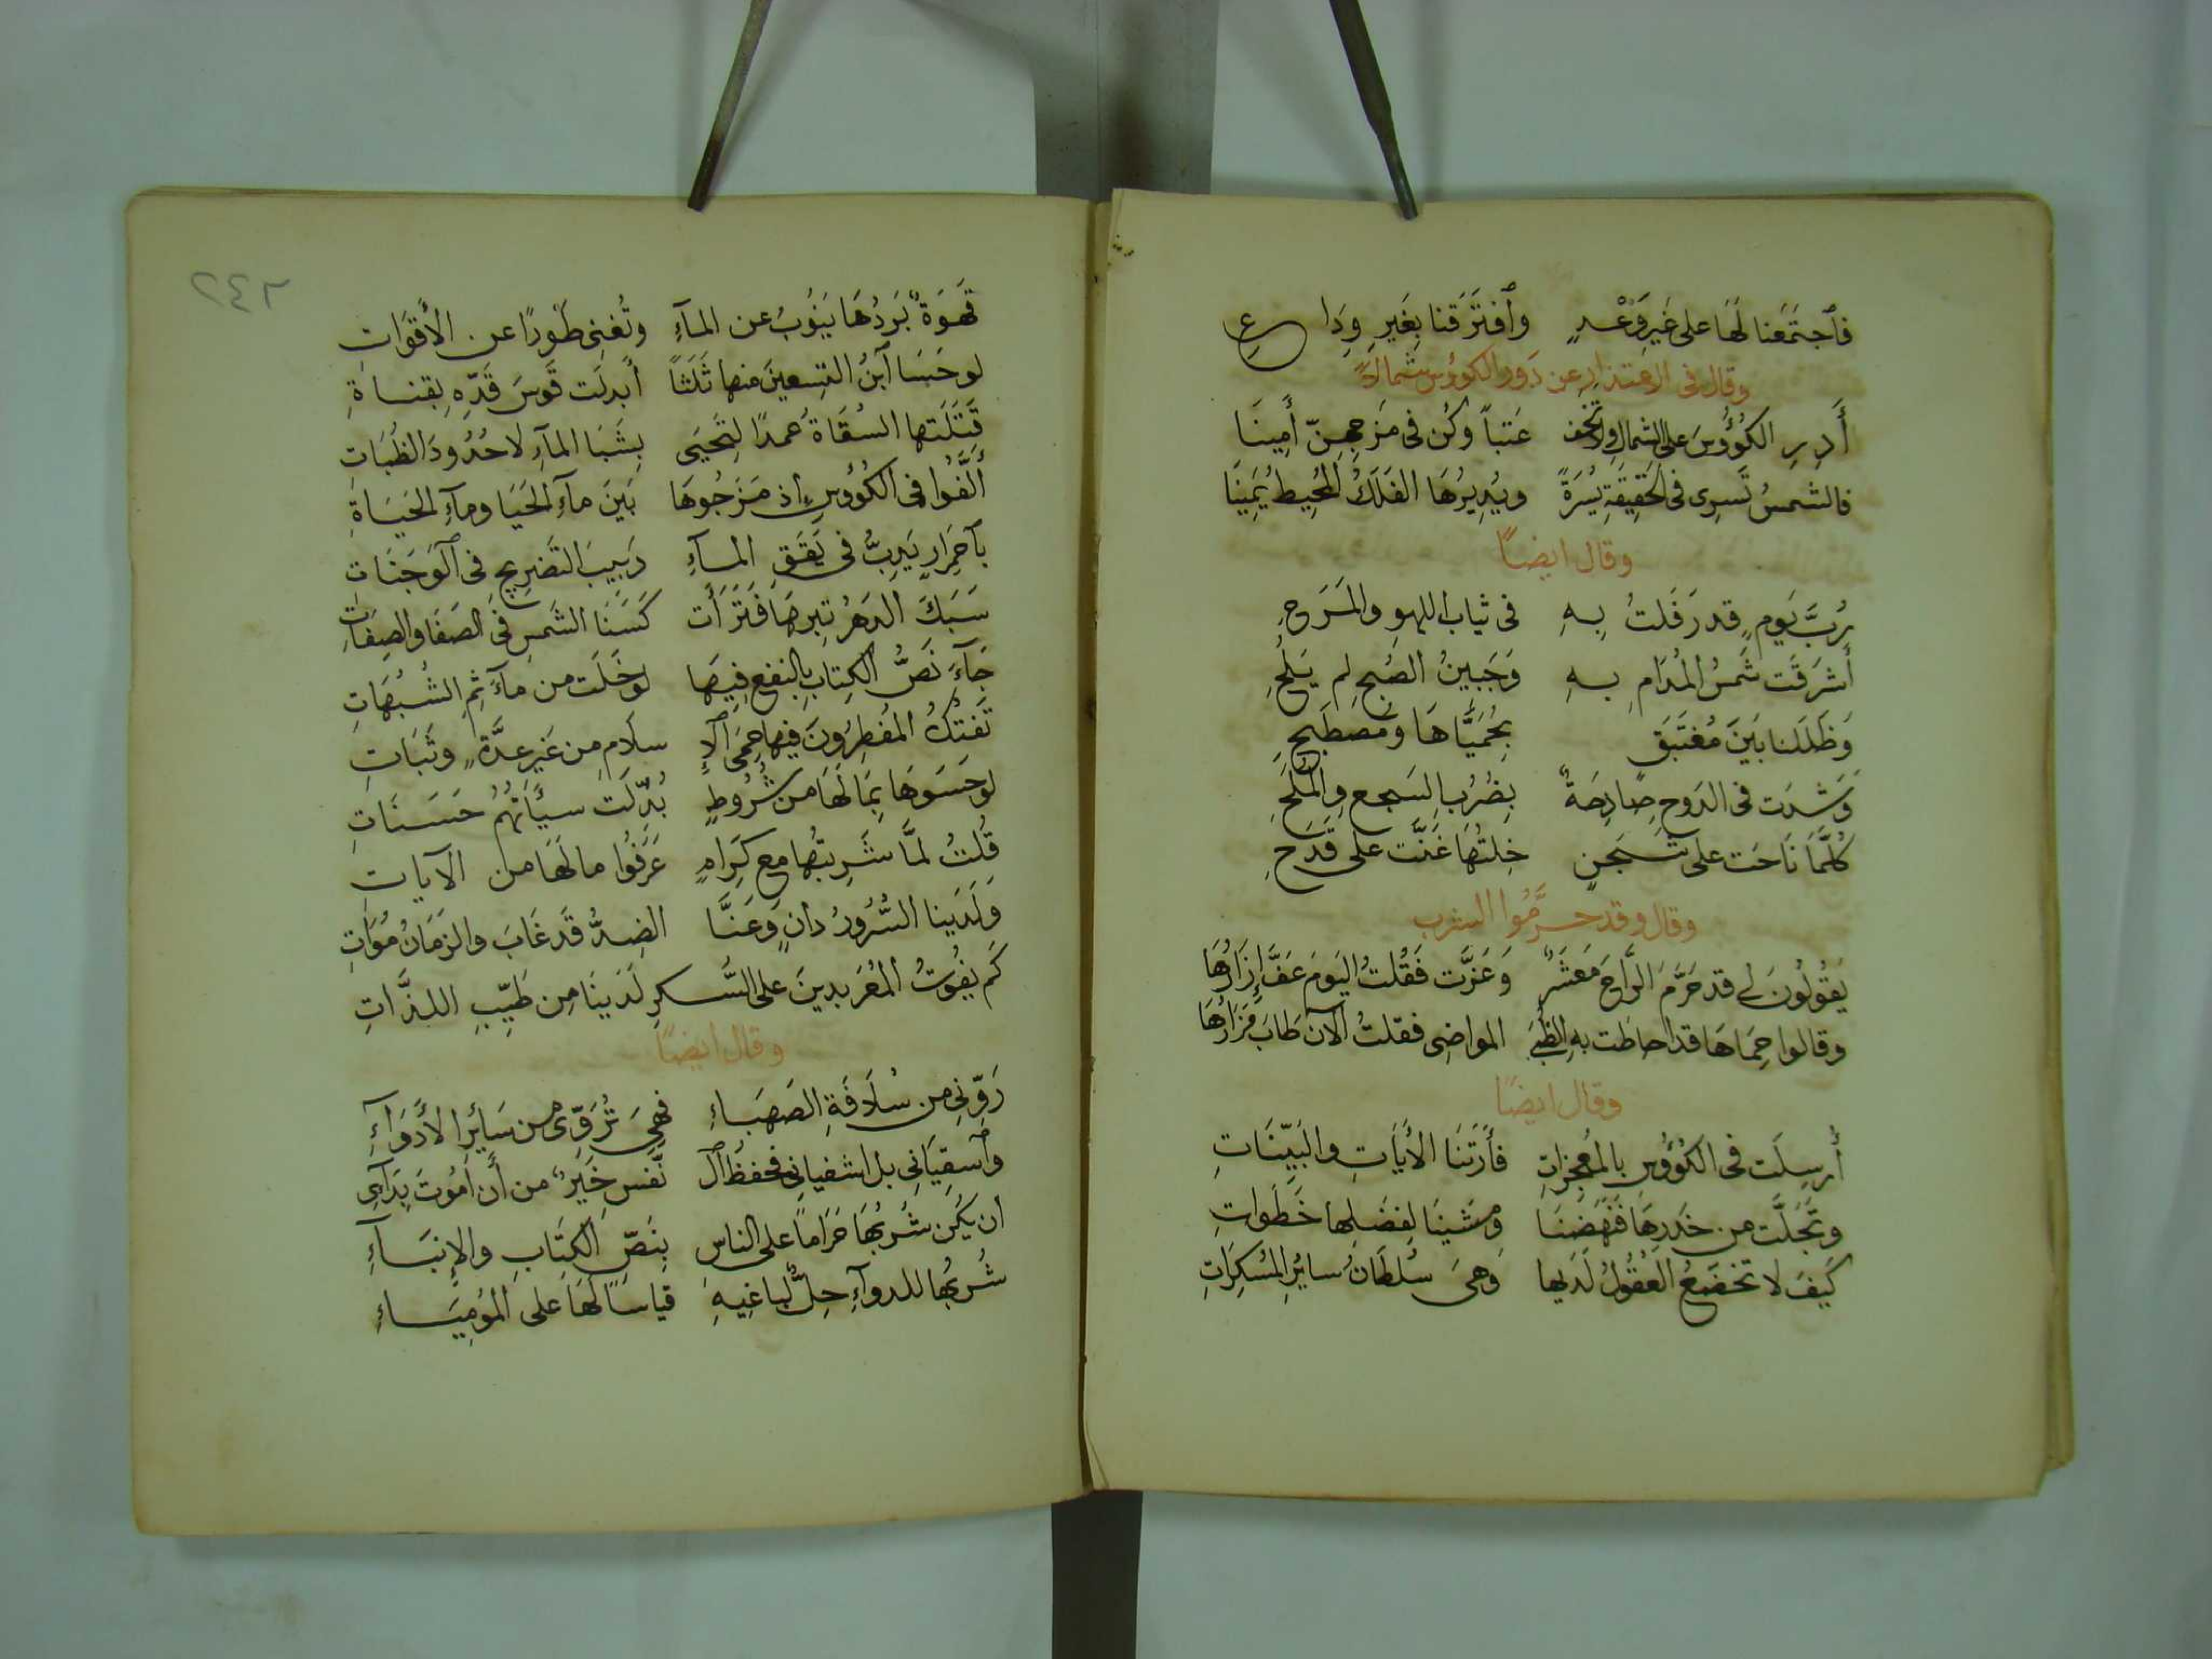 فٱجتَمَعنا لَهَا على غَيرِ وَعْدٍ وٱفتَرَقنا بِغَيرِ وِدَاعِ
وقال فى الاعتذار عن دَور الكوؤس شمالاً
أَدِرِ الكُوُؤسَ على الشمالِ ولا تخف عَتباً وكُن فى مَزجِهِنّ أَمِينَا
فالشمسُ تَسرِى فى الحَقِيقَةِ يُسْرَةً ويُدِيرُهَا الفَلَكُ المُحِيطُ يَمِينَا
وقال ايضًا
رُبَّ يَومٍ قد رَفَلتُ بِهِ فى ثياب اللهوِ والمَرَحِ
أَشرَقَت شَمسُ المُدَامِ بِهِ وَجَبِينُ الصُبحِ لم يَلُحِ
وَظَلَلنا بَينَ مُغتَبَقٍ بِحُمَيَّاهَا ومُصطَبَحِ
وَشَدَت فى الدَوحِ صَادِحَةٌ بِضُرُبِ السَجعِ والمُلَحِ
كُلَّمَا نَاحَت على شَجَنٍ خِلتُهَا غَنَّت على قَدَحِ
وقال وقد حرَّمُوا الشرب
يَقُولُونَ لى قد حَرَّمَ الرَّاحَ مَعشَرٌ وَعَزَّت فَقُلتُ اليَومَ عَفَّ إِزَارُهَا
وقالوا حِمَاهَا قد احاطَت بهِ الظُبَى المواضِى فقلتُ الآن طَابَ مَزَارُهَا
وقال ايضًا
أُرسِلَت فى الكُوُؤسِ بالمُعجِزاتِ فأَرَتنَا الأَيَاتِ والبَيِّنَاتِ
وتَجَلَّت من خِدرِهَا فَنَهَضنَا ومَشَينَا لِفَضلِها خَطَواتِ
كَيفَ لا تَخضَعُ العُقُولُ لَدَيها وَهىَ سُلطَانُ سايُرِ المُسكِرَاتِ
٢٤٢
قَهوَةٌ بَردُهَا يَنُوبُ عن المآءِ وتُغنِى طَورًا عن الأَقوَاتِ
لو حَسَا ٱبنُ التِسعِينَ منها ثَلَثاً أَبدلَت قَوسَ قَدِّهِ بِقناةِ
قَتَلَتها السُقَاةُ عَمدًا لِتَحيَى بِشَبَا المآءِ لا حُدُودَ الظُبَاتِ
أَلَّفُوا فى الكُوُؤسِ إذ مَزَجُوهَا بَينَ مآءِ الحَيَا ومآءِ الحَيَاةِ
بٱحمِرَارٍ يَدِبُّ فى يَقَقِ المآءِ دَبِيبَ التَضرِيجِ فى ٱلوَجَنَاتِ
سَبَكَ الدَهرُ تِبرهَا فَتَرَأَت كَسَنَا الشَمسِ فى الصَفَا والصِفَاتِ
جَآءَ نَصُّ الكِتَابِ بِالنفعِ فِيهَا لو خَلَت من مآءَثِمِ الشُبُهَاتِ
تَفتِكُ المُفطِرُونَ فيها حِمَى ٱلإِ سلَامِ مِن غَيرِ عدَّةٍ وثَبَاتِ
لو حَسَوهَا بِمَا لَهَا من شُرُوطٍ بُدِّلَت سيِّأَتُهُم حَسَنَاتِ
قُلتُ لمَّا شَرِبتُها مع كِرَامٍ عَرَفُوا ما لَهَا من الآيات
وَلَدَينا السُّرُورُ دانٍ وَعَنَّا الضِدُّ قَد غَابَ والزَمَانُ مُوَاتِ
كَم يفُوتُ المُعَربدينَ على السُّكرِ لَدَينَا مِن طَيِّبِ اللذَّاتِ
وقال ايضًا
رَوِّنِى من سُلَافَةِ الصَهبَاءِ فهىَ تُرَوِّى من سَايُرِ الأَدوَآءِ
وٱسقِيَانِى بل اشفيانِى فحفظُ ٱل نَّفسِ خَيرٌ من أَن أَمُوتَ بِدَآءِى
ان يَكُن شُربُهَا حَرَاماً على الناس بِنَصِّ الكِتَابِ والإنبَآءِ
شُربُها للدوآءِ حِلٌّ لباغِيهِ قياسًا لَهَا على المُومِيَاءِ